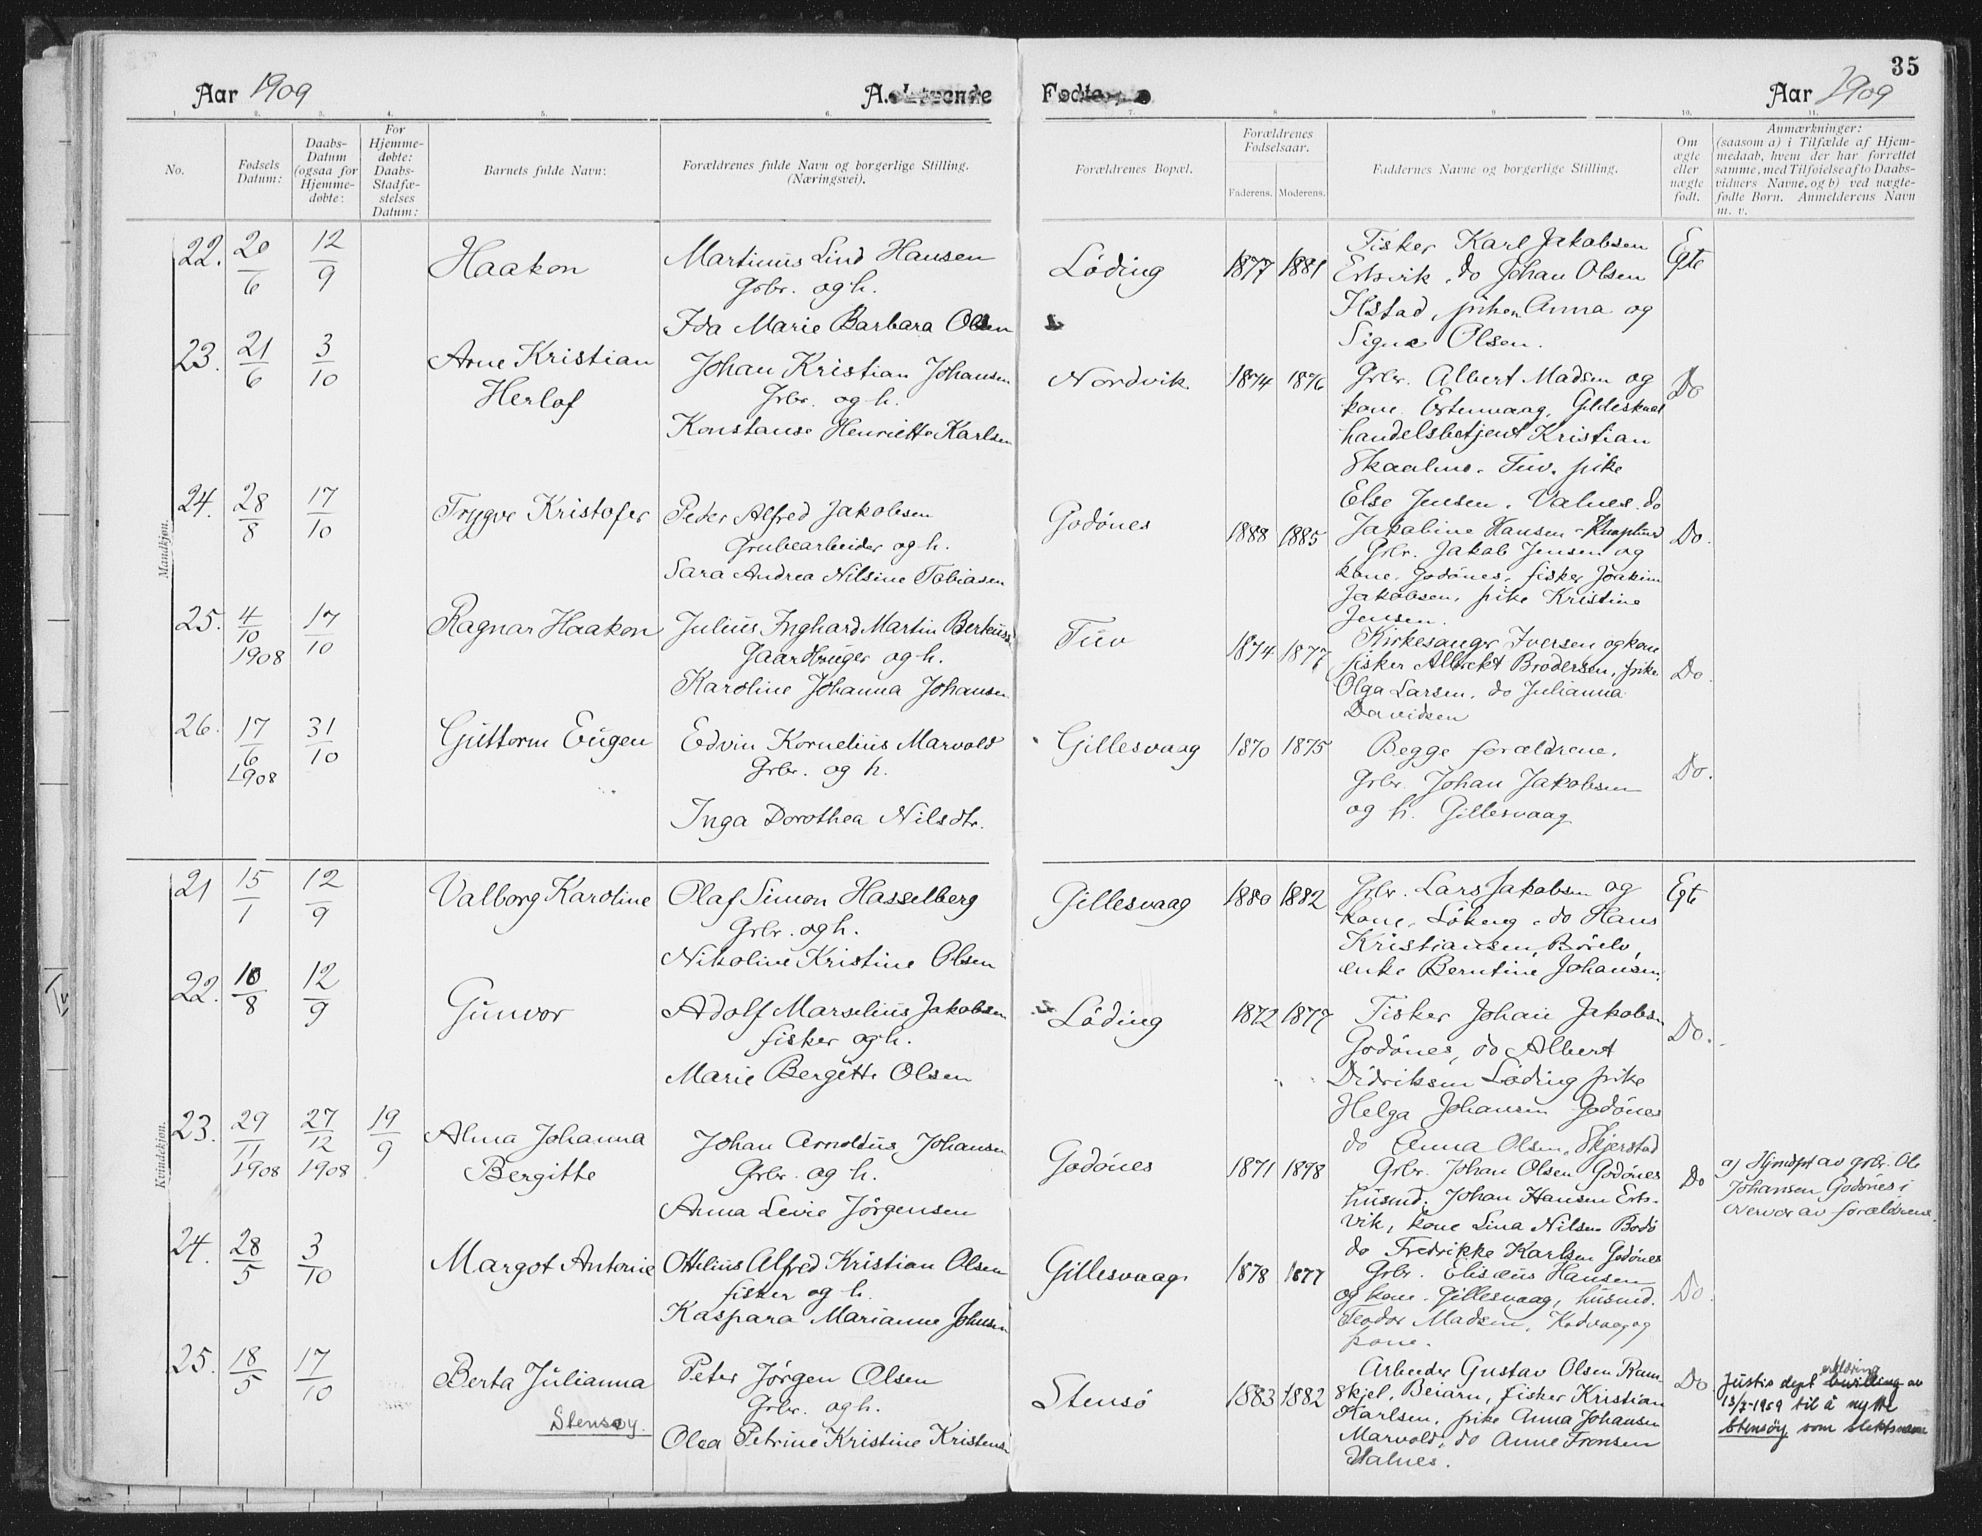 35
Aar 1909
A. Levende Fødte
Aar 1909
1. 2. 3. 4. 5. 6. 7. 8 9 10. 11.
No.
Fødsels Datum:
Daabs-Datum (ogsaa for Hjemme-døbte:
For Hjemme-døbte: Daabs-Stadfæ-stelses Datum:
Barnets fulde Navn:
Forældrenes fulde Navn og borgerlige Stilling.
(Næringsvei).
Forældrenes Bopæl.
Forældrenes Fødselsaar.
Faderens. Moderens.
Faddernes Navne og borgerlige Stilling.
Om ægte eller uægte født.
Anmærkninger:
(saasom a) i Tilfælde af Hjem-
medaab, hvem der har forrettet
samme, med Tilføielse af to Daabs-
vidners Navne, og b) ved uægte-
fødte Børn. Anmelderens Navn
m. v.
Mandkjøn.
22. 20/6 12/9 Haakon
Martinus Lind Hansen
Grbr. og h.
Ida Marie Barbara Olsen
Löding 1877 1881
Fisker Karl Jakobsen
Ertsvik, do Johan Olsen
Ilstad, piken Anna og
Signe Olsen.
Egte
23. 21/6 3/10 Arne Kristian
Herlof
Johan Kristian Johansen
Grbr. og h.
Konstanse Henriette Karlsen
Nordvik. 1874 1876
Grbr. Albert Madsen og
kone. Estenvaag, Gildeskaal
handelsbetjent Kristian
Skaalmo. Tuv. pike
Else Jensen. Valnes. do
Jakobine Hansen
Do
24. 28/8 17/10 Trygve Kristofer
Peder Alfred Jakobsen
Grubearbeider og h.
Sara Andrea Nilsine Tobiasen
Godönes 1888 1885
Grbr. Jakob Jensen og
kone. Godönes, fisker Joakim
Jakobsen, pike Kristine
Jensen.
Do.
25. 4/10 1908 17/10 Ragnar Haakon
Julius Inghard Martin Berteus
Gaardbruger og h.
Karoline Johanna Johansen
Tuv 1874 1877
Kirkesanger Iversen og kone
fisker Albrekt Brodersen, pike
Olga Larsen, do Julianna
Davidsen
Do.
26. 17/6 1908 31/10 Guttorm Eugen
Edvin Kornelius Marvold
Grbr. og h.
Inga Dorothea Nilsdtr.
Gillesvaag 1870 1875
Begge forældrene.
Grbr. Johan Jakobsen
og h. Gillesvaag
Do.
Kvindekjøn.
21 15/1 12/9 Valborg Karoline
Olaf Simon Hasselberg
Grbr. og h.
Nikoline Kristine Olsen
Gillesvaag 1880 1882
Grbr. Lars Jakobsen og
kone, Lökeng, do Hans
Kristiansen, Börelv,
enke Berntine Johansen.
Egte
22. 10/8 12/9 Gunvor
Adolf Marselius Jakobsen
fisker og h.
Marie Bergitte Olsen
Löding 1872 1877
Fisker Johan Jakobsen
Godönes, do Albert
Didriksen Löding pike
Helga Johansen Godönes
do Anna Olsen, Skjerstad
Do.
23. 29/11 1908 27/12 1908 19/9 Alma Johanna
Bergitte
Johan Arnoldus Johansen
Grbr. og h.
Anna Levie Jörgensen
Godönes 1871 1878
Grbr. Johan Olsen Godönes
husmd. Johan Hansen Erts-
vik, kone Lina Nilsen Bodö
do Fredrikke Karlsen Godönes
Do
a) Hjmdpt av grbr. Ole
Johansen Godönes i
overvær av forældrene.
24. 28/5 3/10 Margot Antonie
Ottelius Alfred Kristian Olsen
fisker og h.
Kaspara Marianne Johnsen
Gillesvaag 1878 1877
Grbr. Elisæus Hansen
og kone. Gillesvaag, husmd.
Teodor Madsen, Kodvaag og
kone.
Do.
25. 18/5 17/10 Berta Julianna
Stensøy
Peter Jørgen Olsen
Grbr. og h.
Olea Petrine Kristine Kristensen
Stensö 1883 1882
Arbeider Gustav Olsen Ram-
skjel, Beiarn, fisker Kristian
Karlsen, pike Anna Johansen
Marvold, do Anne Fronsen
Valnes.
Do
Justisdept erklæring bevilling av
13/7-1959 til å nytte
Stensöy som slektsnavn